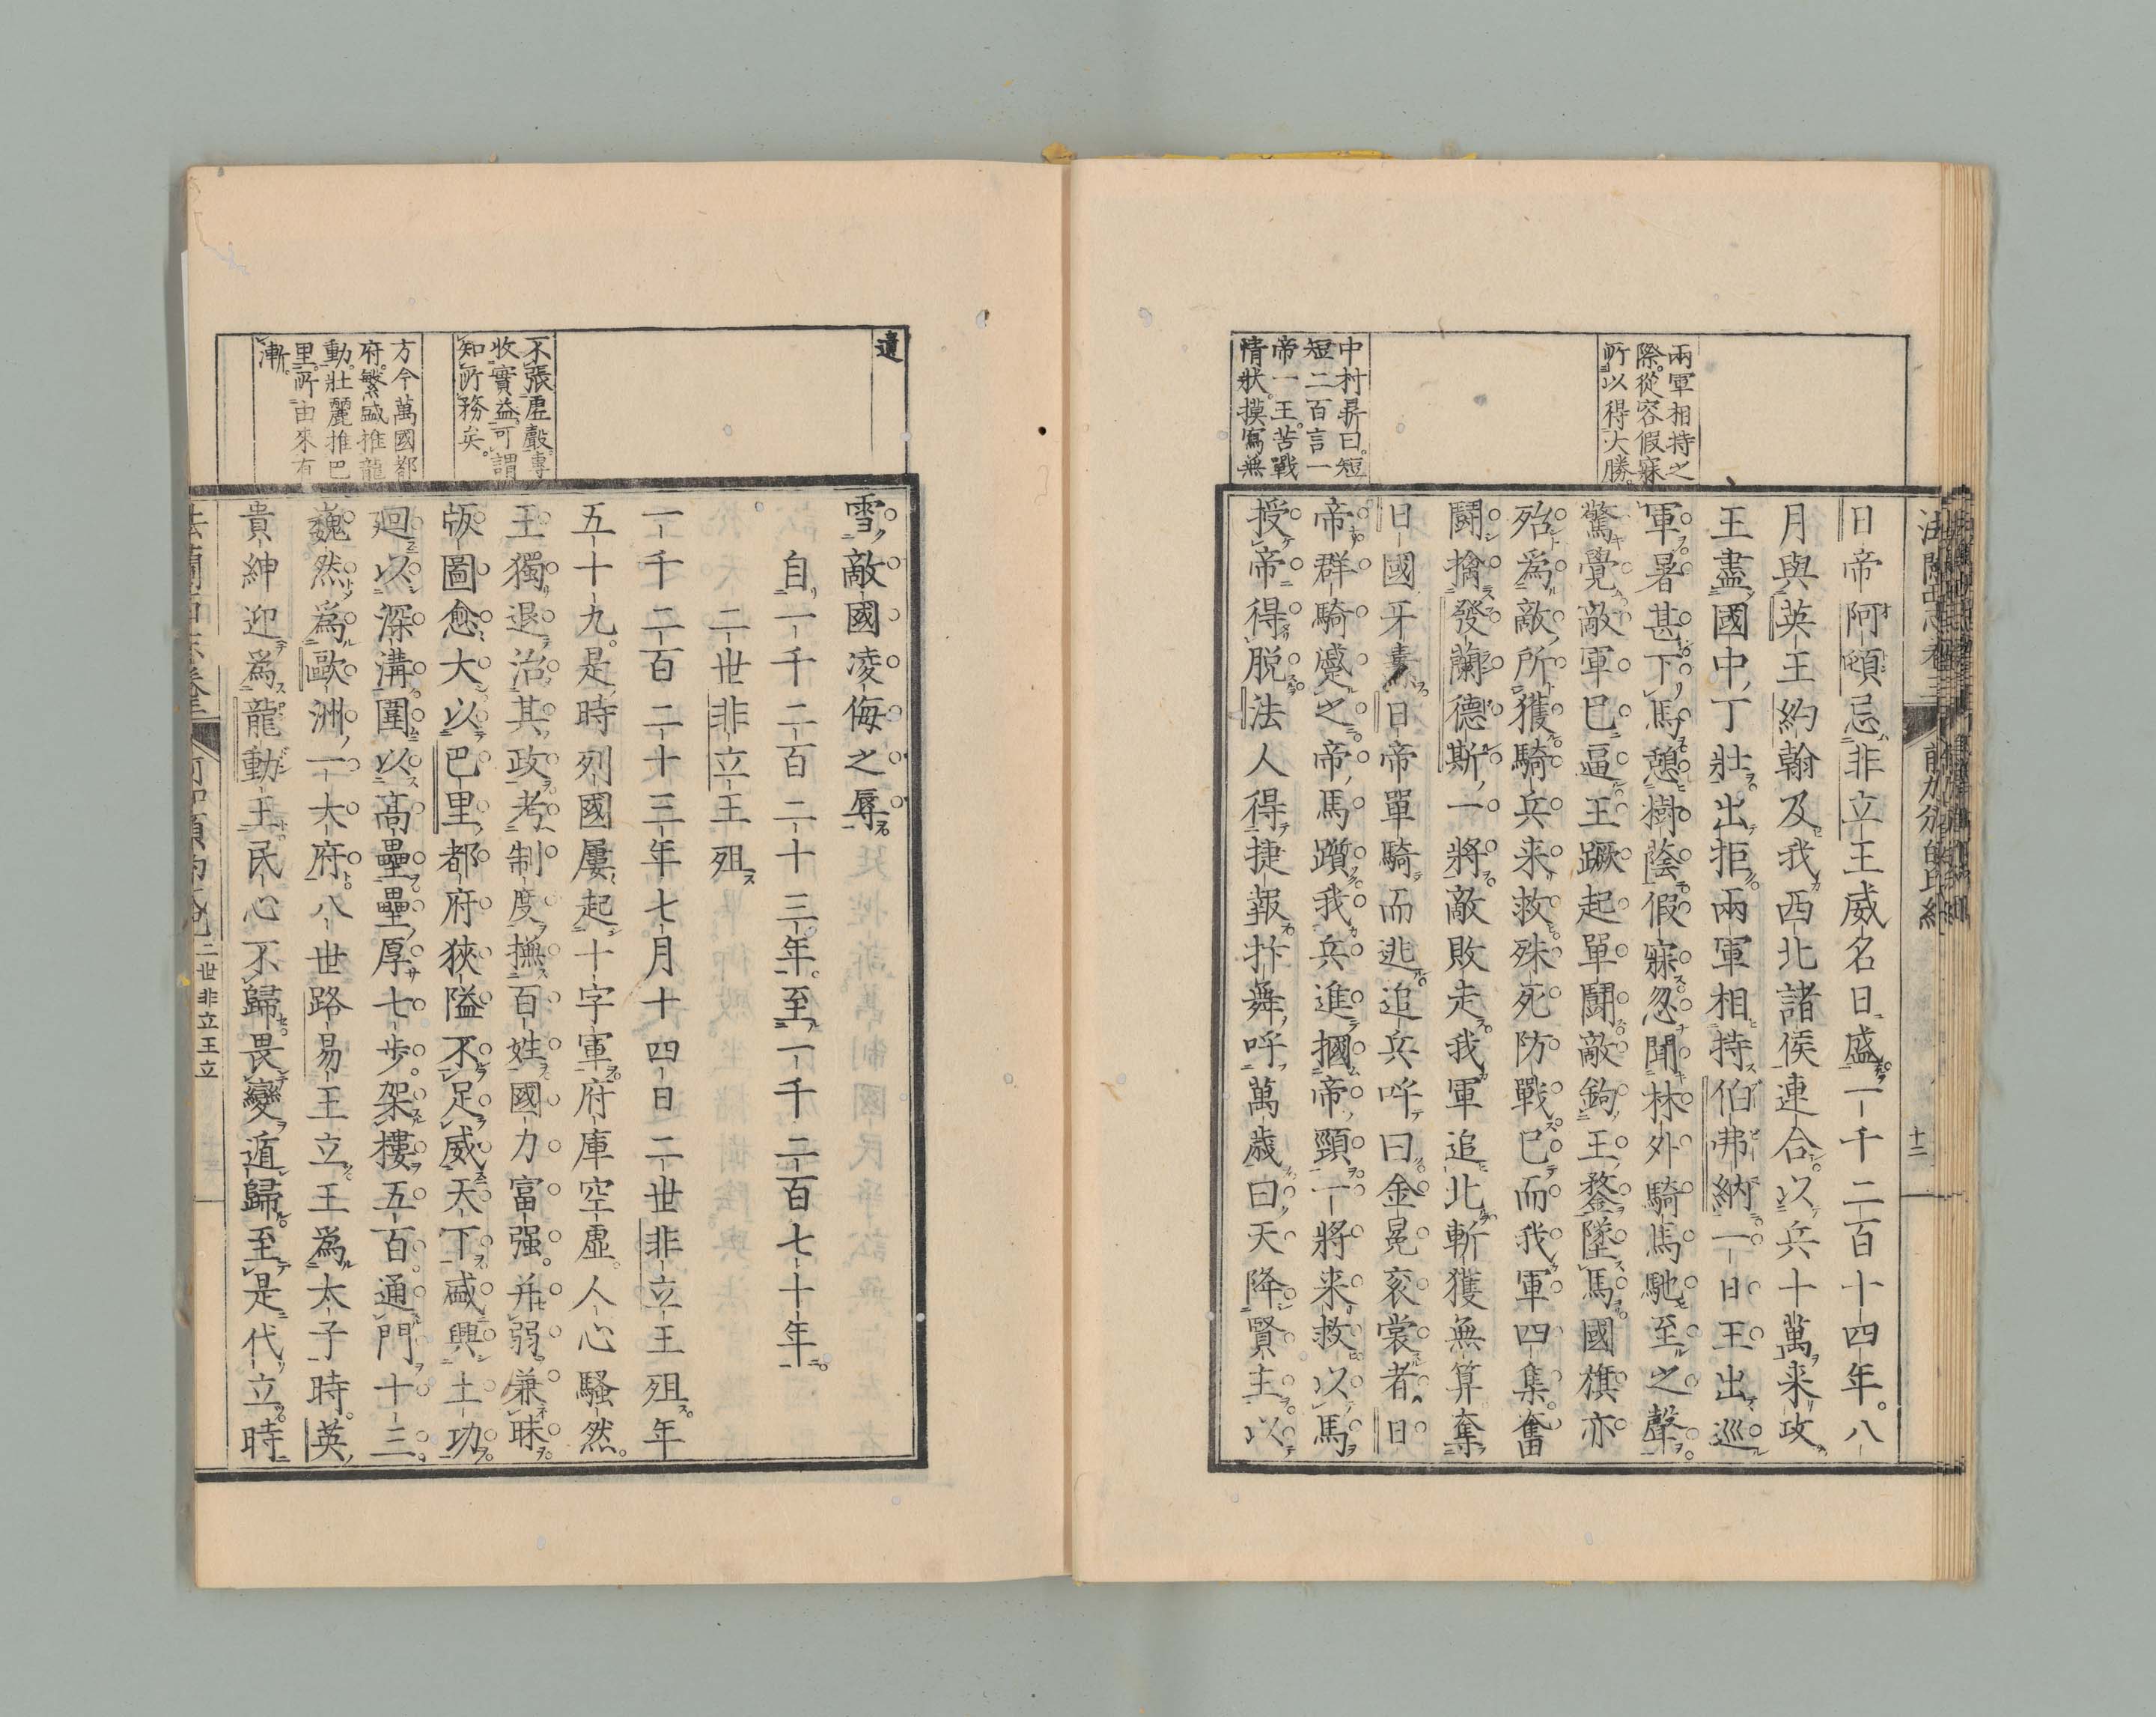 兩軍相持之
際。從容假寐
所以得大勝。
中村昻曰。短
短二百言一
帝一王。苦戰
情狀。摸寫無
日帝阿頓忌非立王威名日盛一千二百十四年。八
月與英王約翰及我西北諸侯連合以兵十萬来攻
王盡國中丁壯出拒兩軍相持伯弗納一日王出巡
軍暑甚下馬憩樹蔭假寐忽聞林外騎馬馳至之聲
驚覺敵軍已逼王蹶起單鬪敵鉤王鍪墜馬國旗亦
殆爲敵所獲騎兵来救殊死防戰已而我軍四集奮
鬪擒發蘭德斯一將敵敗走我軍追北斬獲無算奪
日國牙纛日帝單騎而逃追兵呼曰金冕衮裳者日
帝群騎蹙之帝馬躓我兵進摑帝頸一將来救以馬
授帝得脱法人得捷報抃舞呼萬歳曰天降賢主以
十二
遺
不張虛聲專
收實益可謂
知所務矣。
方今萬國都
府。繁盛推龍
動。壯麗推巴
里。所由來有
漸。
雪敵國凌侮之辱
自一千二百二十三年。至一千二百七十年。
二世非立王殂
一千二百二十三年七月十四日二世非立王殂年
五十九。是時列國屢起十字軍府庫空虛。人心騷然。
王獨退治其政考制度撫百姓國力富强。并弱兼昧
版圖愈大以巴里都府狹隘不足威天下盛興土功
廻以深溝圍以高壘壘厚七步。架樓五百通門十三
巍然爲歐洲一大府。八世路易王立王爲太子時。英
貴紳迎爲龍動王民心不歸畏變遁歸。至是代立時
二世非立王立